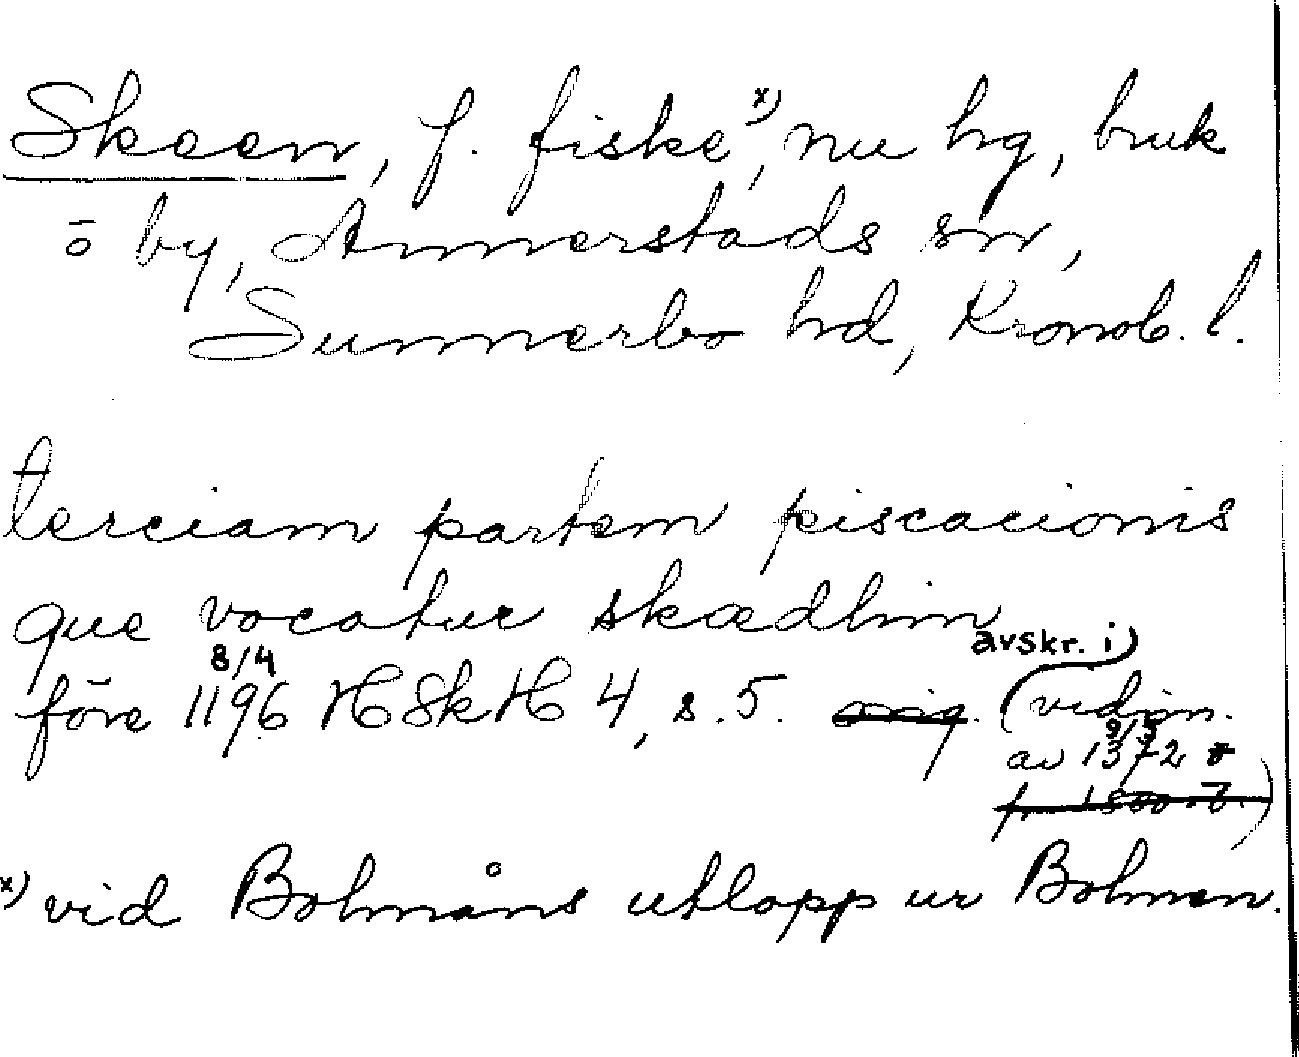 Skeen, f. fiske x), nu hg, bruk
o by, Annerstads sn,
Sunnerbo hd, Kronob. l.
terciam partem piscacionis
que vocatur skædhin
avskr. i)
8/4
före 1196 HSkH 4, s. 5. orig. (vidim.
9/3
av 1372 o
f. 1500-t.)
x) vid Bolmåns utlopp ur Bolmen.